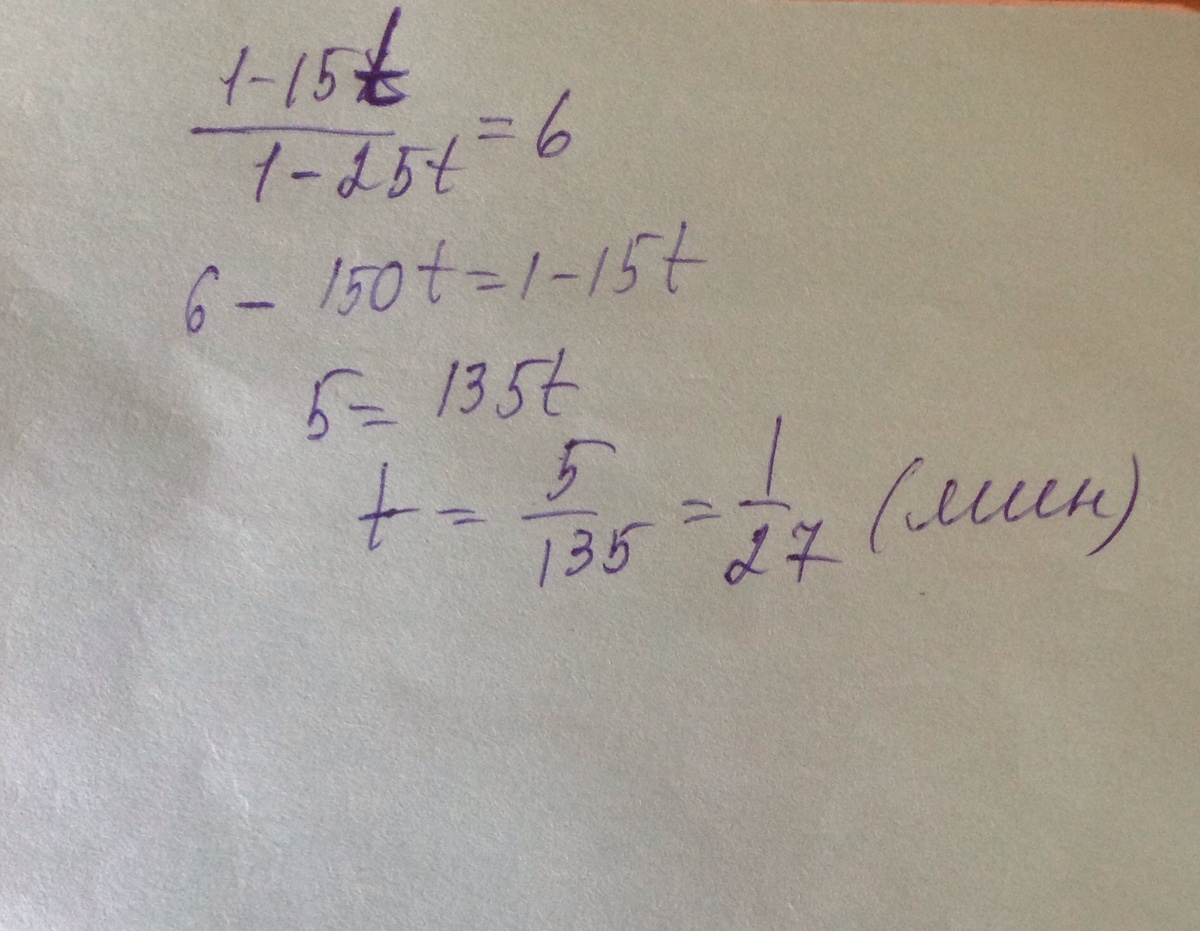 (1-15t)/(1-25t) = 6
6 - 150t = 1-15t
5 = 135t
t = 5/135 = 1/27 (мин)